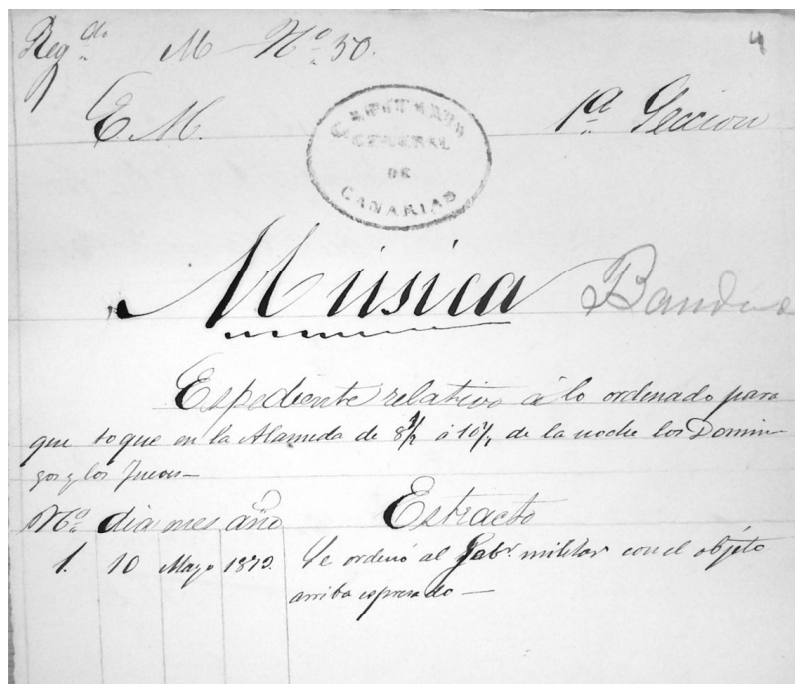 Reg.do M Nº 50. 4
E M. 1ª Seccion
CAPITANIA
GENERAL
DE
CANARIAS
Música Bandas
Espediente relativo á lo ordenado para
que toque en la Alameda de 8½ á 10½ de la noche los Domin-
gos y los Jueves—
Nº dia mes año Estracto
1. 10 Mayo 1872. Se ordenó al Gobr. militar con el objéto
arriba espresado—